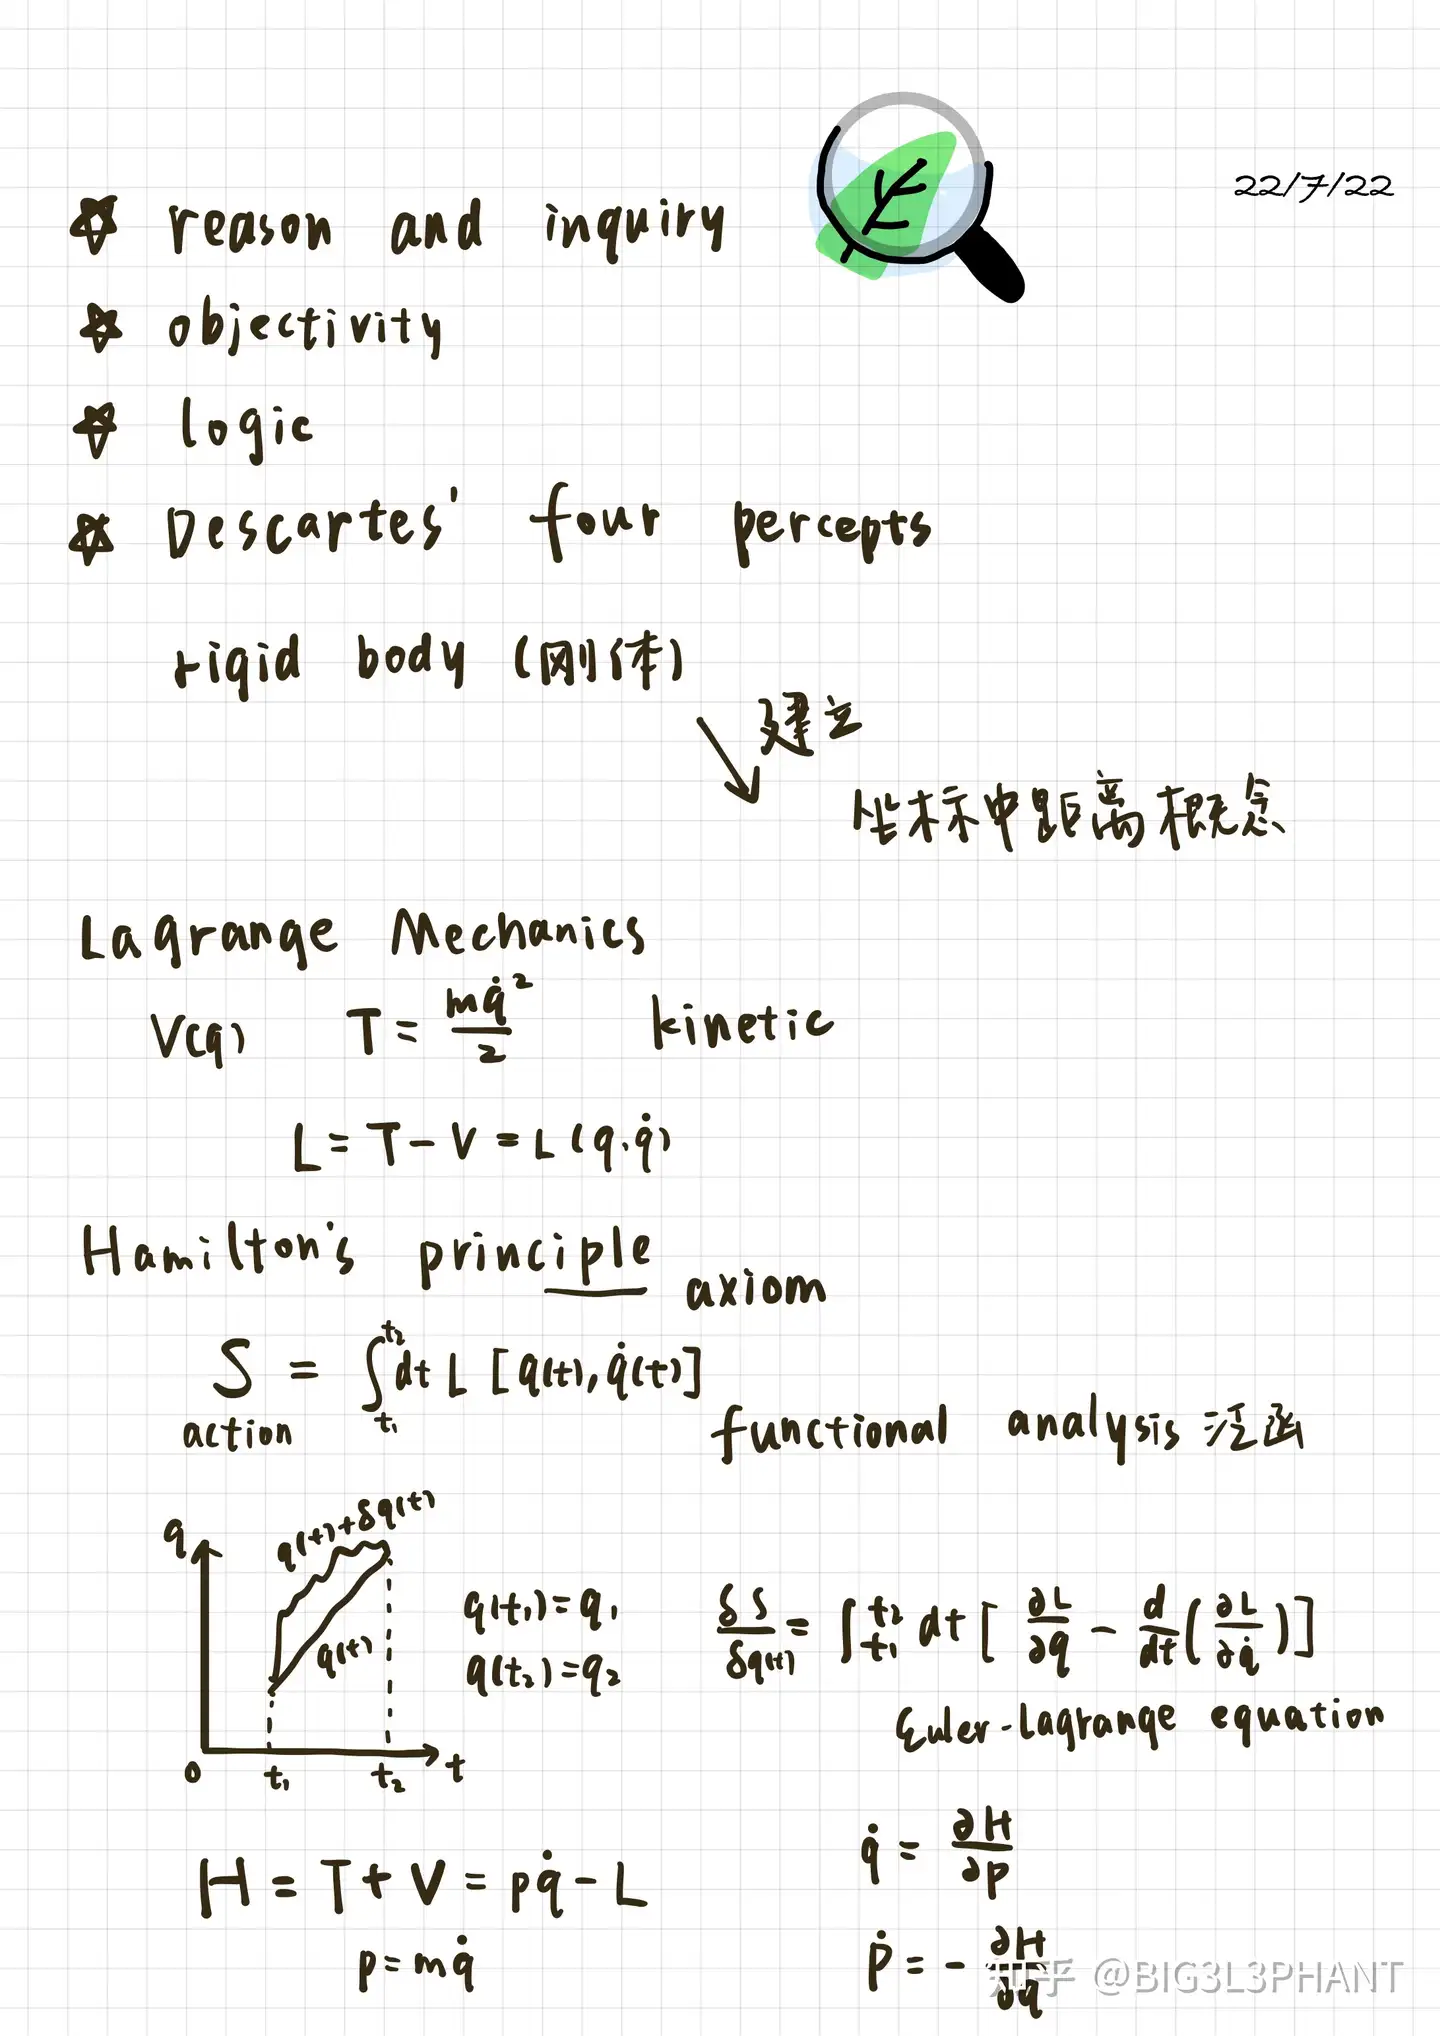 22/7/22
☆ reason and inquiry
☆ objectivity
☆ logic
☆ Descartes' four percepts
rigid body (刚体)
建立
坐标中距离概念
Lagrange Mechanics
V(q) T = mq̇²/2 kinetic
L = T - V = L(q, q̇)
Hamilton's principle axiom
S = ∫_{t₁}^{t₂} dt L [q(t), q̇(t)]
action
functional analysis 泛函
q
q(t)+δq(t)
q(t)
0 t₁ t₂ t
q(t₁)=q₁
q(t₂)=q₂
δS/δq(t) = ∫_{t₁}^{t₂} dt [∂L/∂q - d/dt(∂L/∂q̇)]
Euler-Lagrange equation
H = T + V = pq̇ - L
p = mq̇
q̇ = ∂H/∂p
ṗ = - ∂H/∂q
知乎 @BIG3L3PHANT